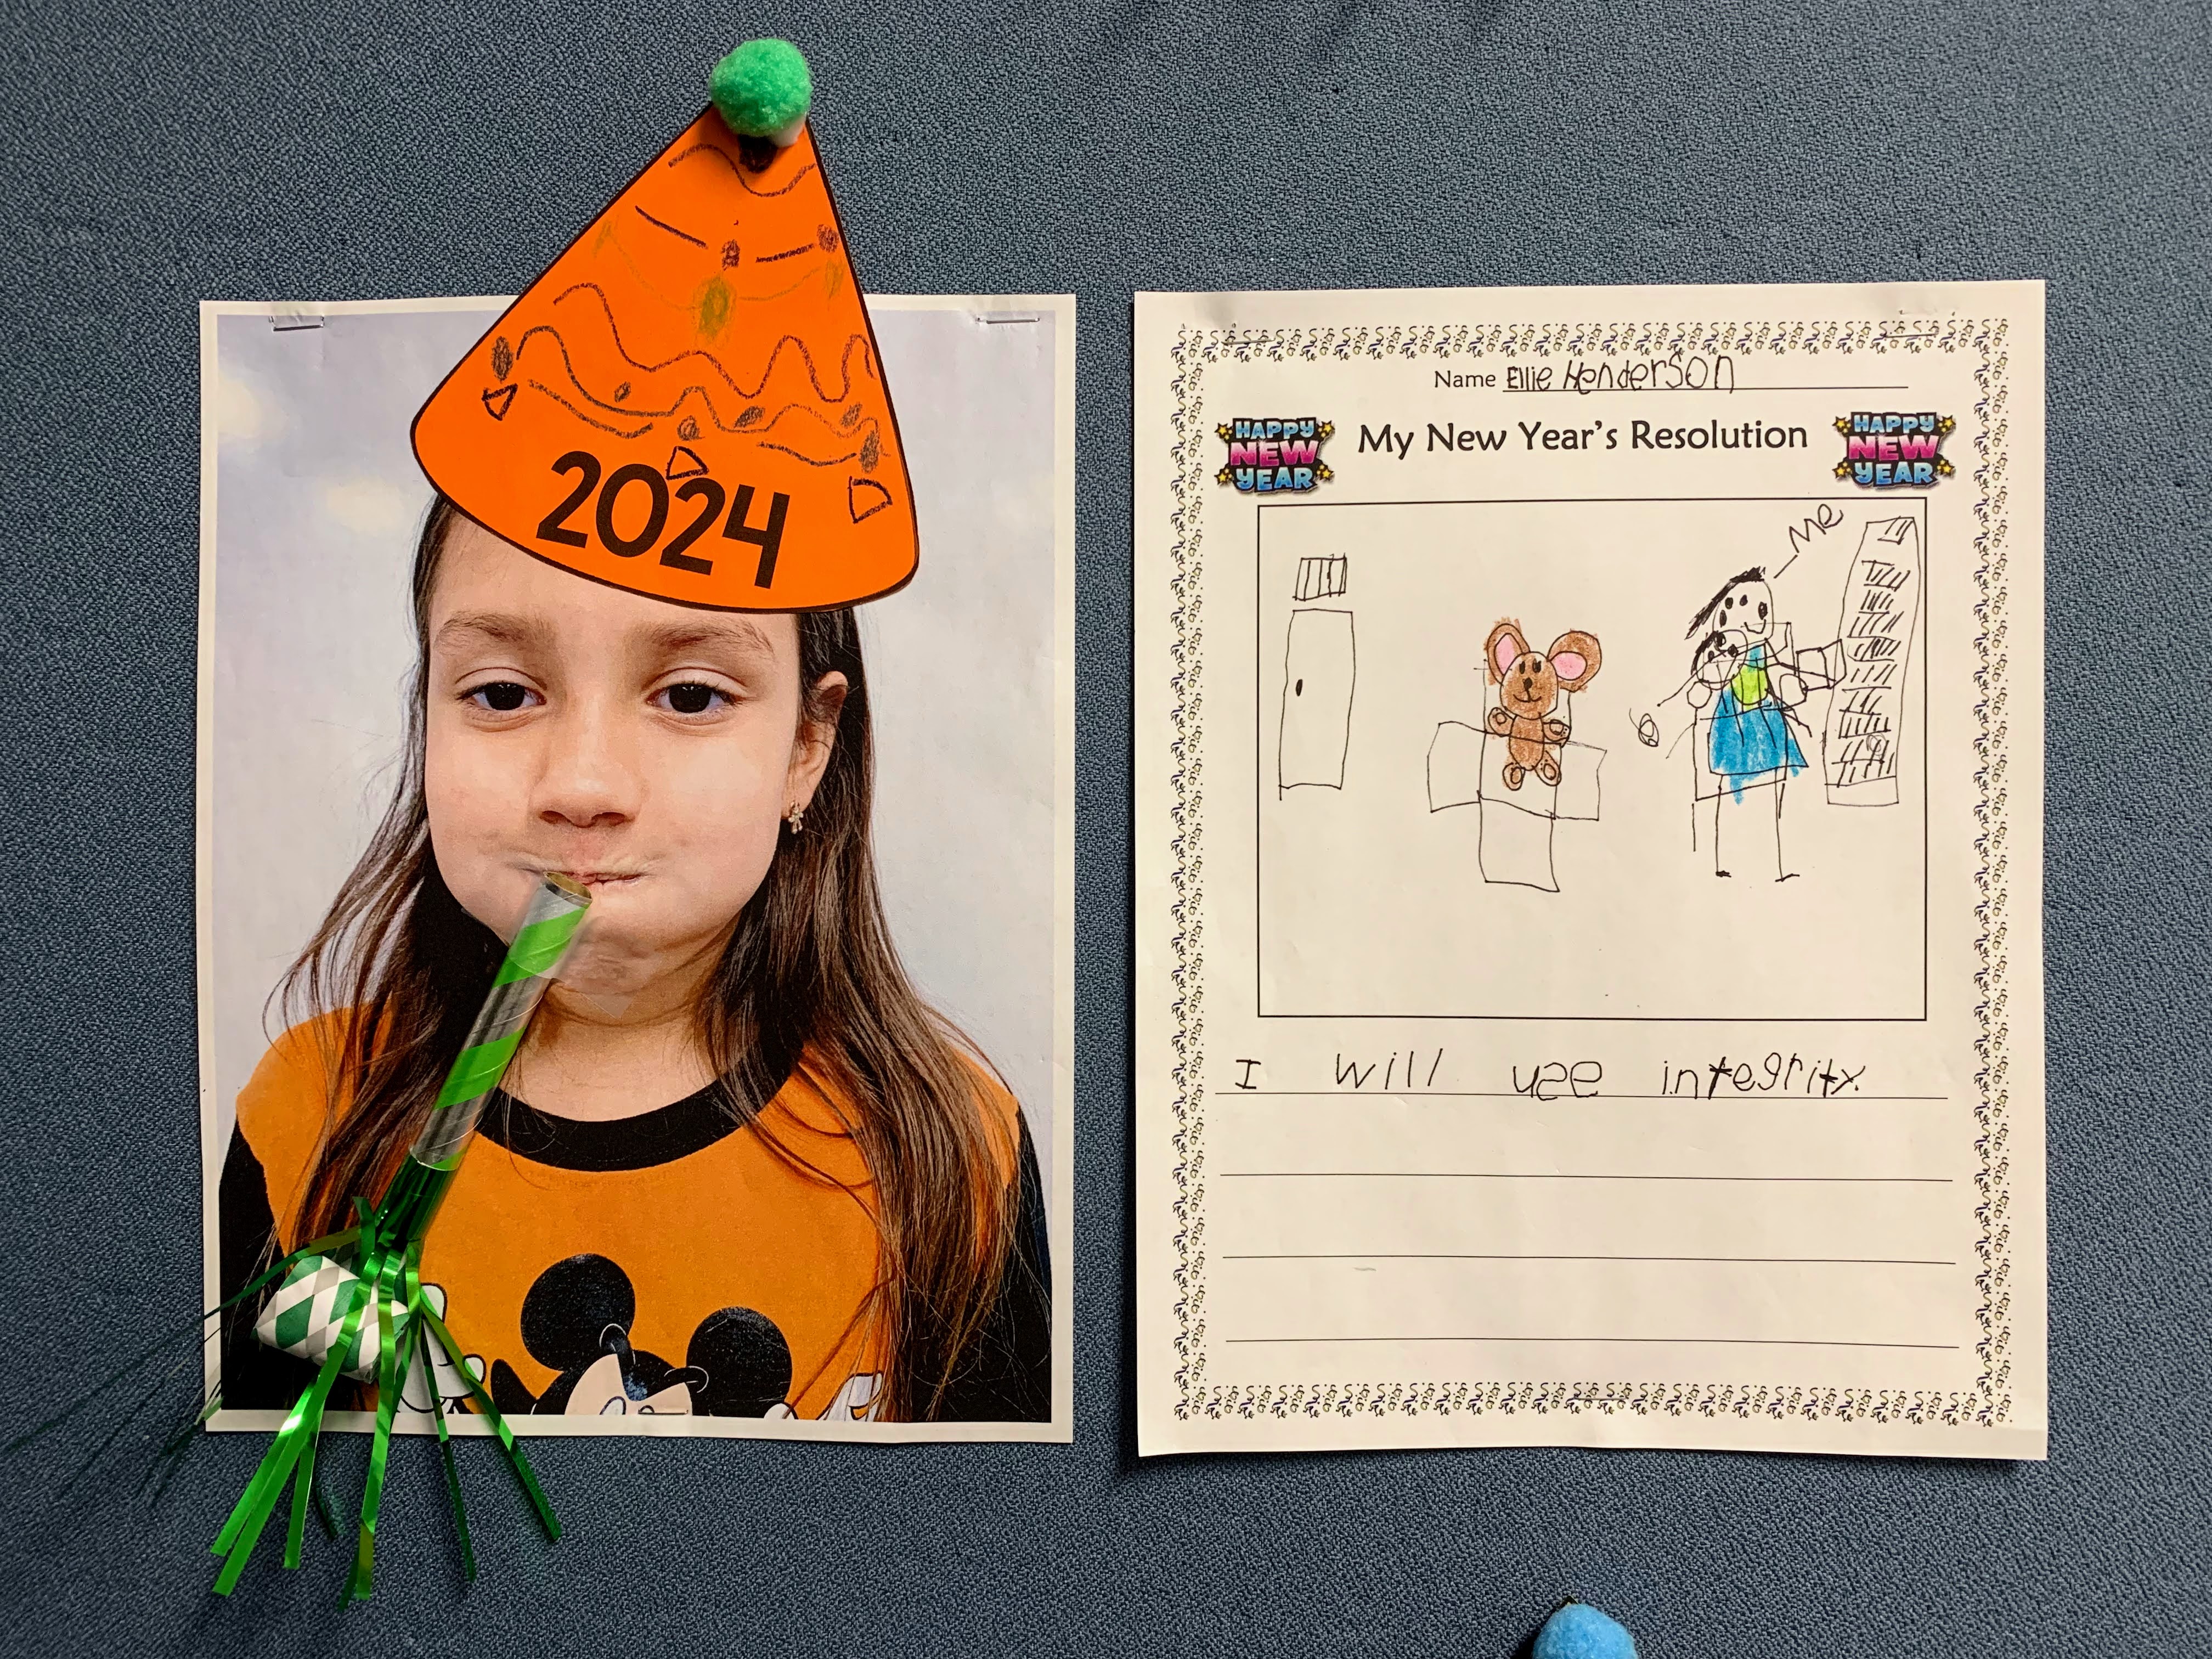 2024
Name Ellie Henderson
HAPPY NEW YEAR
My New Year's Resolution
HAPPY NEW YEAR
Me
I will use integrity.